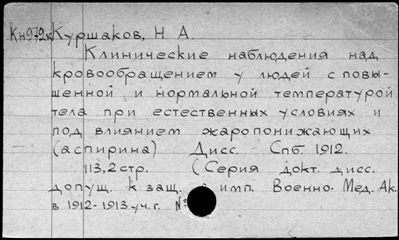 Кн972к Куршаков, Н А.
Клинические наблюдения над
кровообращением у людей с повы-
шенной и нормальной температурой
тела при естественных условиях и
под влиянием жаропонижающих
(аспирина) Дисс. Спб. 1912.
113,2 стр. (Серия докт. дисс.
допущ. к защ. имп. Военно-Мед. Ак.
в 1912-1913 уч. г. №